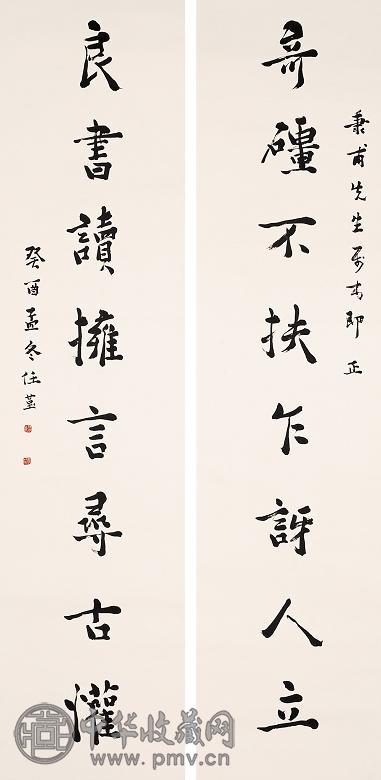 秉甫先生屬书即正
奇礓不扶乍訝人立
良書讀擁言尋古懽
癸酉孟冬任堇
中华收藏网
www.pmv.cn